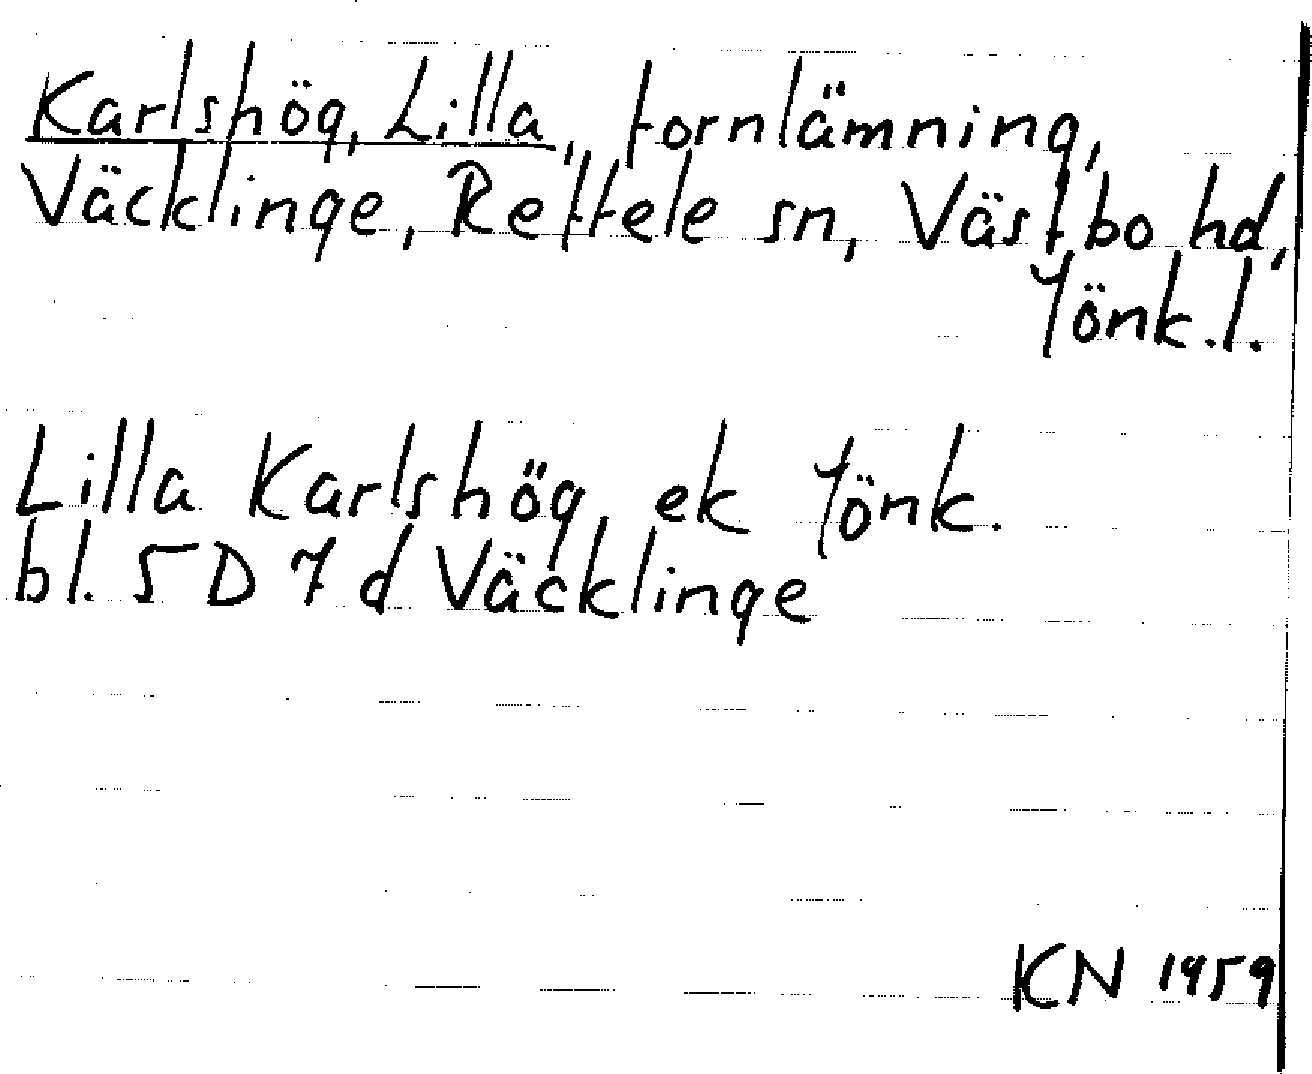 Karlshög, Lilla, fornlämning,
Väcklinge, Reftele sn, Västbo hd,
Jönk.l.
Lilla Karlshög, ek Jönk.
bl. 5 D 7 d Väcklinge
KN 1959